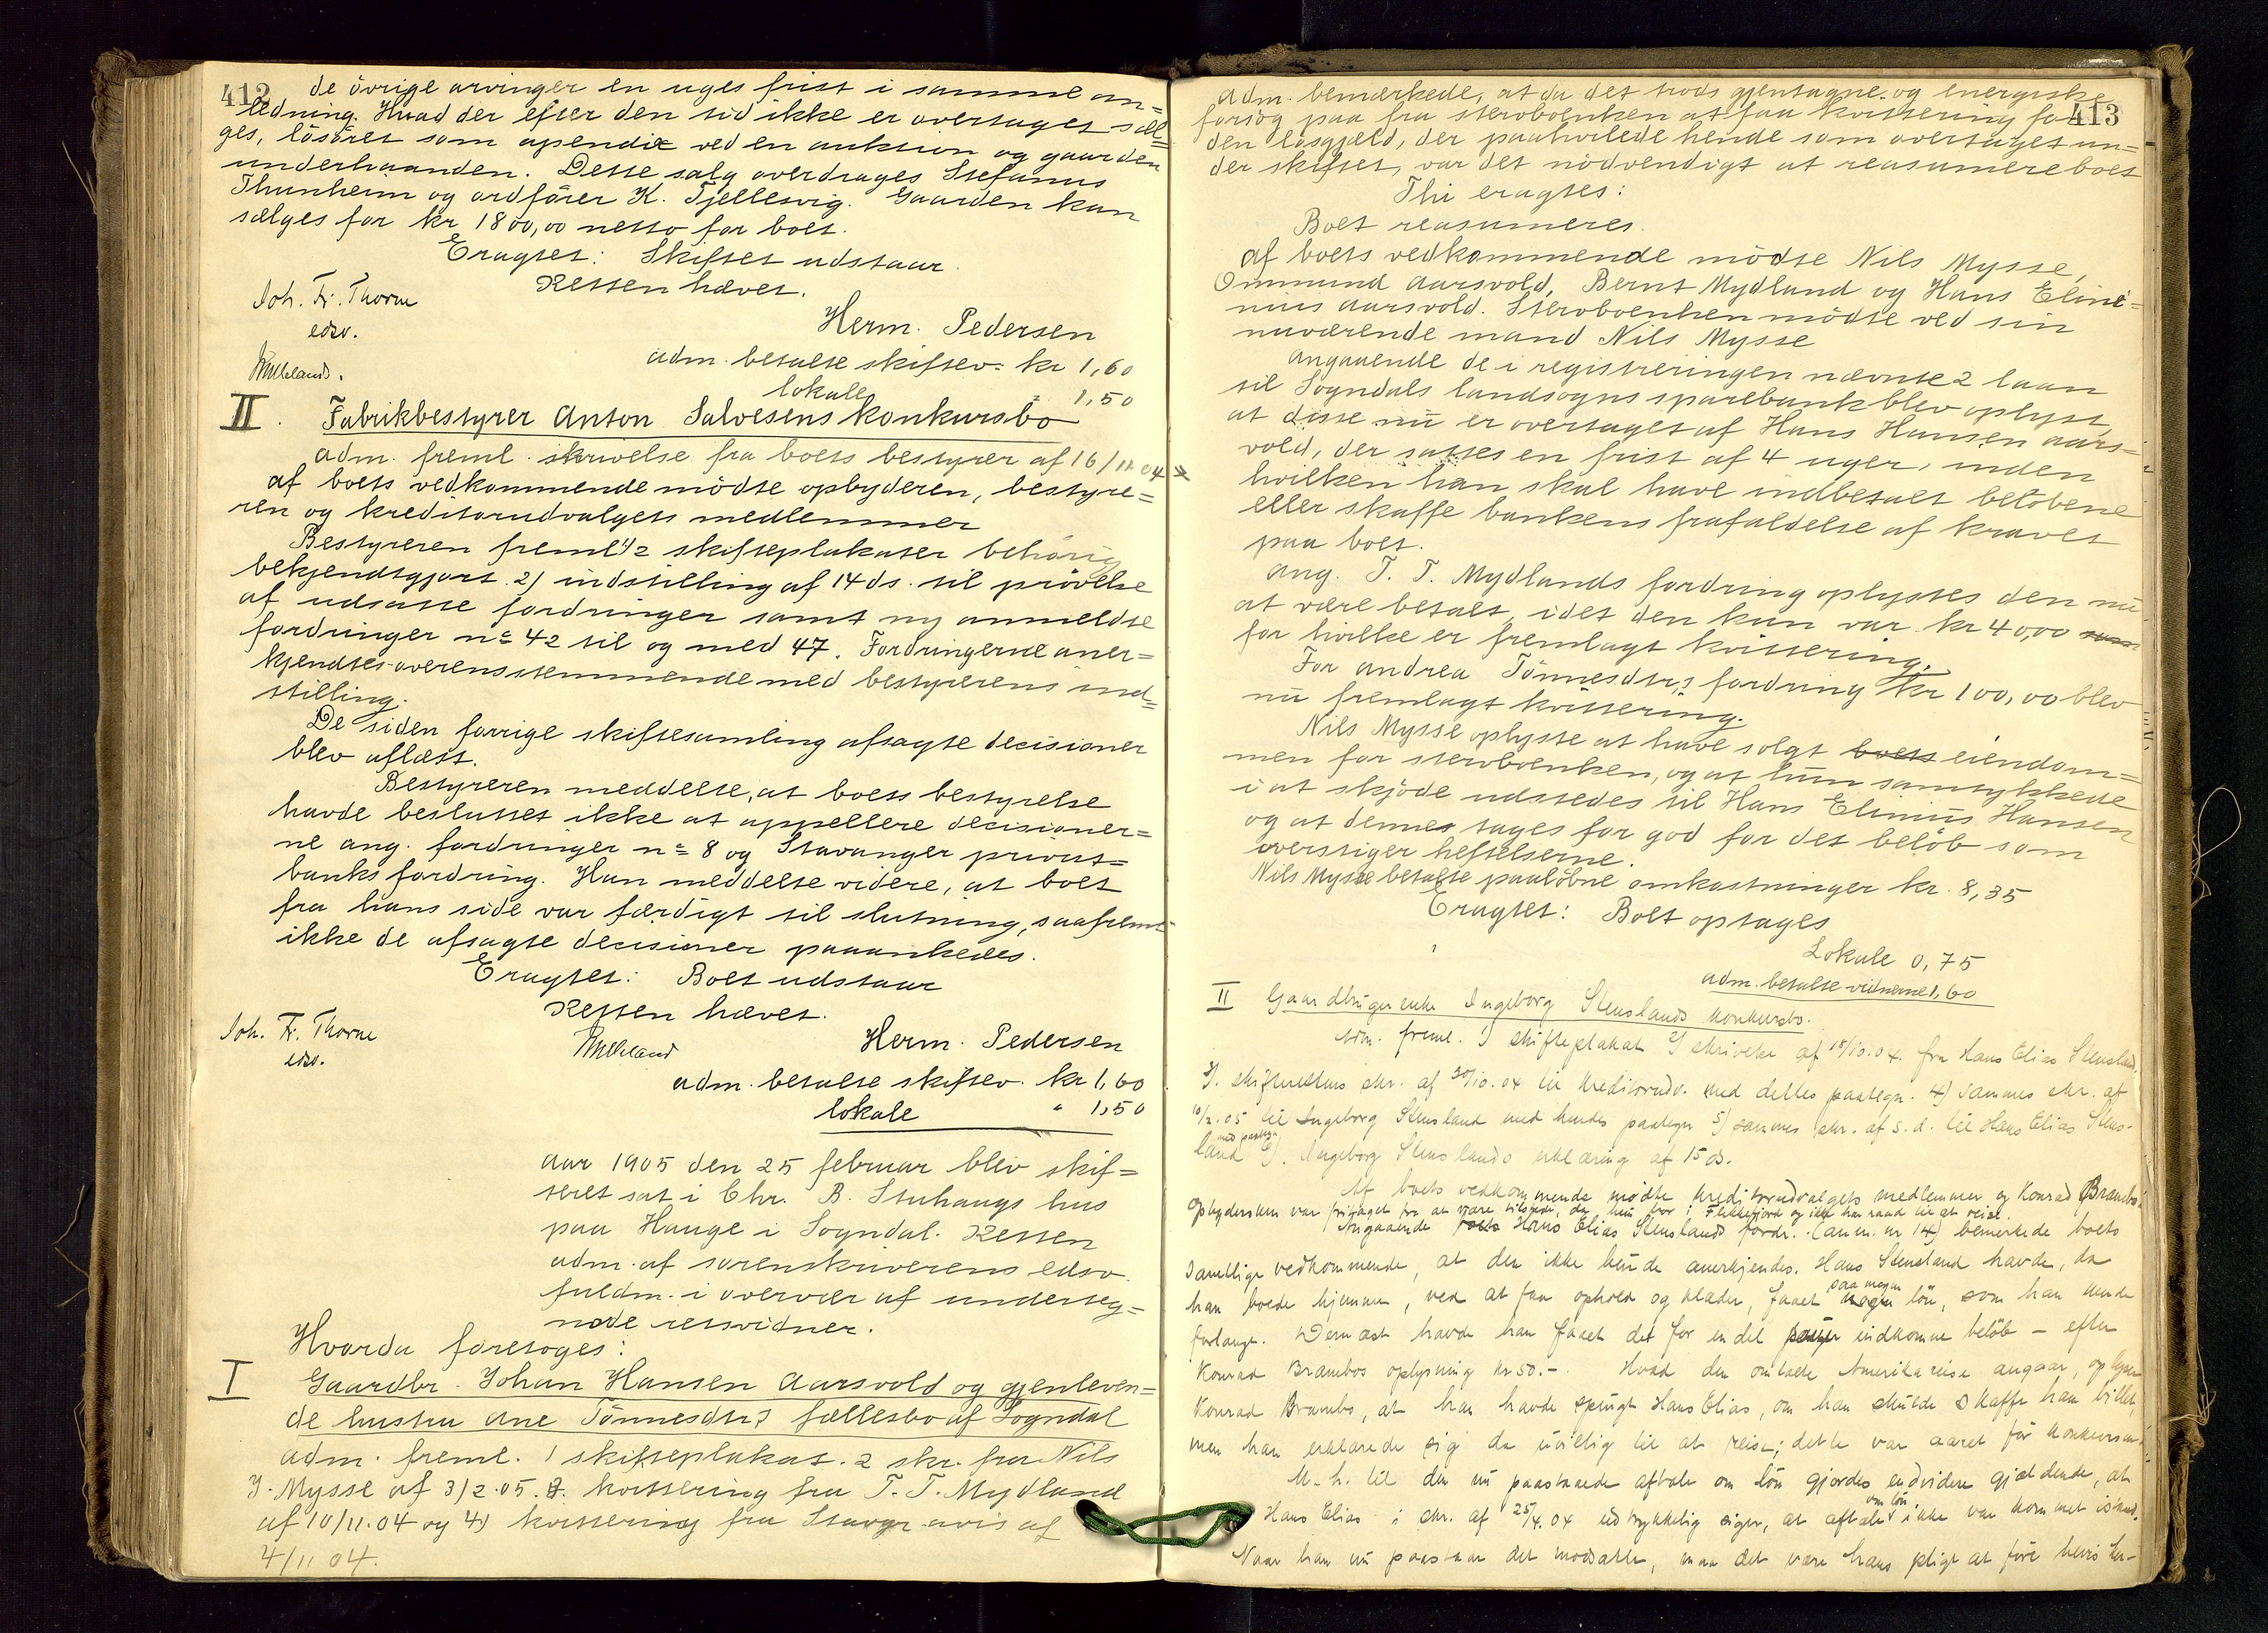 412
de övrige arvinger en uges frist i samme an=
ledning. Hvad der efter den tid ikke er overtaget sæl=
ges, lösöret som apendix ved en auktion og gaarden
underhaanden. Dette salg overdrages Stefanus
Thunheim og ordförer K. Tjellesvig. Gaarden kan
sælges for kr 1800,00 netto for boet.
Eragtet: Skiftet udstaar.
Retten hævet.
Joh. Fr. Thorne
edsv.
Herm. Pedersen
adm. betalte skiftev. kr 1,60
lokale " 1,50
II. Fabrikbestyrer Anton Salvesens konkursbo
Adm. freml. skrivelse fra boets bestyrer af 16/12 04
af boets vedkommende mödte opbyderen, bestyre=
ren og kreditorudvalgets medlemmer
Bestyreren freml 1/2 skifteplakater behörig
bekjendtgjort. 2) indstilling af 14 ds. til prövelse
af udsatte fordringer samt ny anmeldte
fordringer no 42 til og med 47. Fordringerne aner=
kjendtes overensstemmende med bestyrerens ind=
stilling.
De siden forrige skiftesamling afsagte decisioner
blev oplæst.
Bestyreren meddelte, at boets bestyrelse
havde besluttet ikke at appellere decisioner=
ne ang. fordringer no 8 og Stavanger privat=
banks fordring. Han meddelte videre, at boet
fra hans side var færdigt til slutning, saafremt
ikke de afsagte decisioner paaankedes.
Eragtet: Boet udstaar
Retten hævet.
Joh. Fr. Thorne
edsv.
Herm. Pedersen
adm. betalte skiftev. kr 1,60
lokale " 1,50
Aar 1905 den 25 februar blev skif=
teret sat i Chr. B. Stuhaugs hus
paa Hauge i Sogndal. Retten
adm. af sorenskriverens edsv.
fuldm. i overvær af underteg=
nede retsvidner.
Hvorda foretoges:
I Gaardbr. Johan Hansen Aarsvold og gjenleven=
de hustru Ane Tönnesdtrs fællesbo af Sogndal
Adm. freml. 1 skifteplakat. 2 skr. fra Nils
J. Mysse af 3/2.05. 3. kvittering fra T. T. Mydland
af 10/11.04 og 4) kvittering fra Stavgr avis af
4/11 04.
413
Adm. bemærkede, at da det trods gjentagne og energiske
forsög paa fra sterboenken at faa kvittering for
den lösgjæld, der paahvilede hende som overtaget un=
der skiftet, var det nödvendigt at reasumere boet
Thi eragtes:
Boet reasumeres.
Af boets vedkommende mödte Nils Mysse,
Ommund Aarsvold, Bernt Mydland og Hans Elini=
nus Aarsvold. Sterboenken mödte ved sin
nuværende mand Nils Mysse
Angaaende de i registreringen nævnte 2 laan
til Sogndals landsogns sparebank blev oplyst,
at disse nu er overtaget af Hans Hansen Aars=
vold, der sattes en frist af 4 uger, inden
hvilken han skal have indbetalt belöbene
eller skaffe bankens frafaldelse af kravet
paa boet.
Ang. T. T. Mydlands fordring oplystes den nu
at være betalt, idet den kun var kr 40,00 som
for hvilke er fremlagt kvittering.
For Andrea Tönnesdtrs fordring kr 100,00 blev
nu fremlagt kvittering.
Nils Mysse oplyste at have solgt boets eiendom=
men for sterboenken, og at hun samtykkede
i at skjöde udstedes til Hans Elinius Hansen
og at dennes tages for god for det belöb som
overstiger heftelserne.
Nils Mysse betalte paalöbne omkostninger kr. 8,35
Eragtet: Boet optages
Lokale 0,75
adm. betalte vidnerne 1,60
II Gaardbrugerenke Ingeborg Stenslands konkursbo.
Adm. freml. 1) skifteplakat 2) skrivelse af 18/10.04. fra Hans Elias Stensland,
3). skifterettens skr. af 30/10.04 til kreditorudv. med dettes paategn. 4) sammes skr. af
10/2.05 til Ingeborg Stensland med hendes paategn 5) sammes skr. af s.d. til Hans Elias Stens-
land med paategn 6). Ingeborg Stenslands erklæring af 15 ds.
Af boets vedkommende mödte kreditorudvalgets medlemmer og Konrad Brambo.
Opbydersken var fritaget fra at være tilstede, da hun bor i Flekkefjord og ikke har raad til at reise.
Angaaende boets Hans Elias Stenslands fordr. (anm. nr 14) bemerkede boets
samtlige vedkommende, at den ikke kunde anerkjendes. Hans Stensland havde, da
han boede hjemme, ved at faa ophold og klæder, faaet saa megen lön, som han kunde
forlangt. Dernæst havde han faaet det for en del indkomne belöb – efter
Konrad Brambos oplysning kr 50.- Hvad den omtalte Amerikareise angaar, oplyser
Konrad Brambo, at han havde spurgt Hans Elias, om han skulde skaffe ham billet,
men han erklærede sig da uvillig til at reise; dette var aaret för konkursen.
M. h. til den nu paastaaede aftale om lön gjordes endvidere gjældende, at
Hans Elias i skr. af 25/4.04 udtrykkelig siger, at aftale om lön ikke var kommet istand.
Naar han nu paastaar det modsatte, maa det være hans pligt at före bevis her-